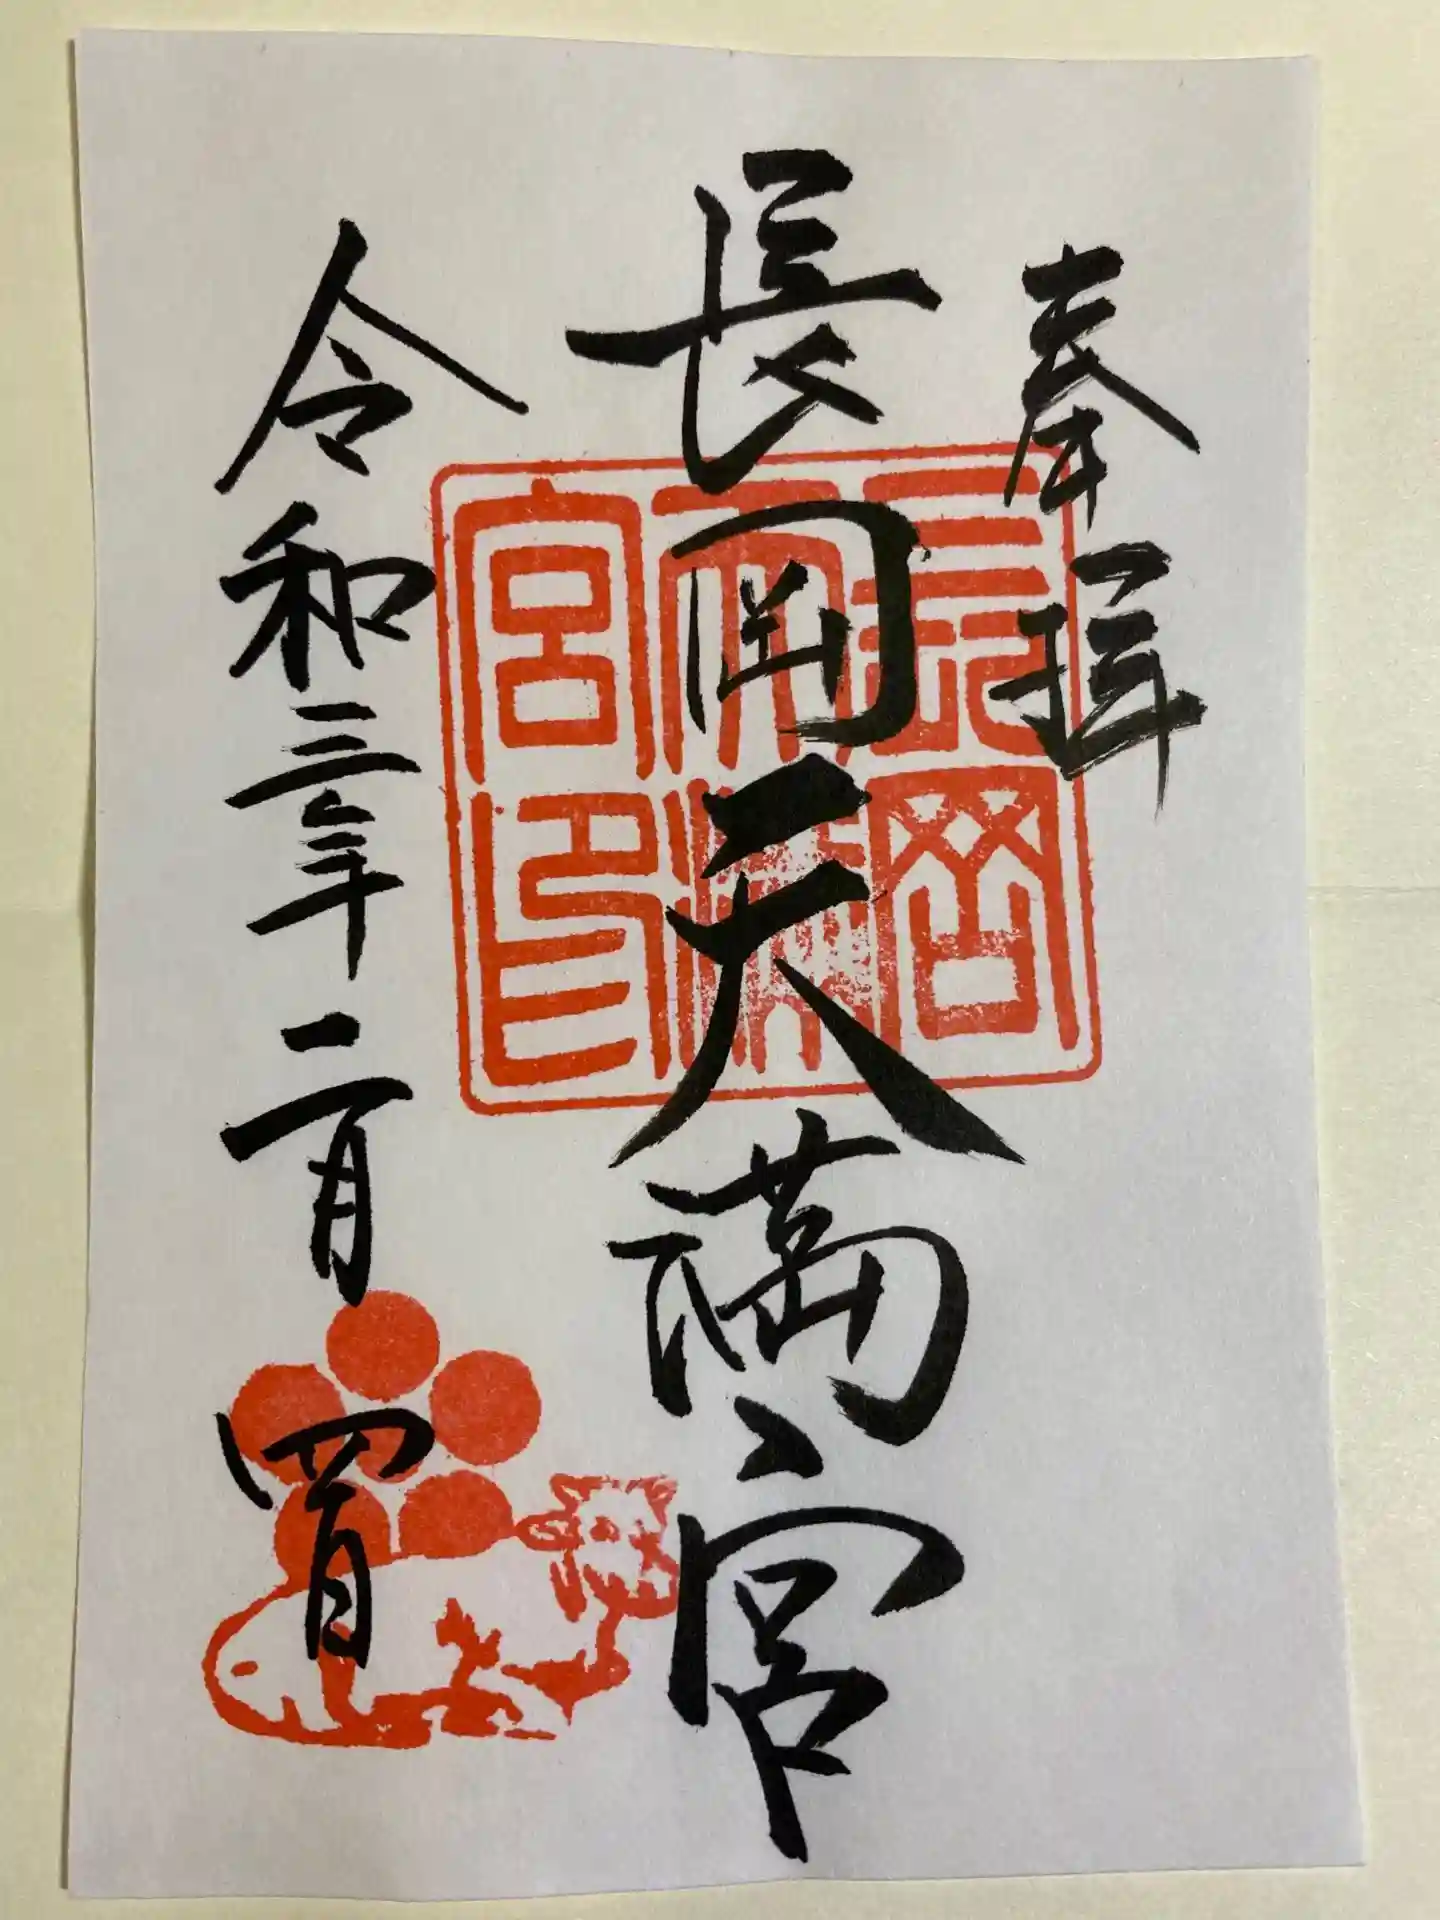 奉拝
長岡天満宮
令和三年二月四日
長岡
天満
宮印